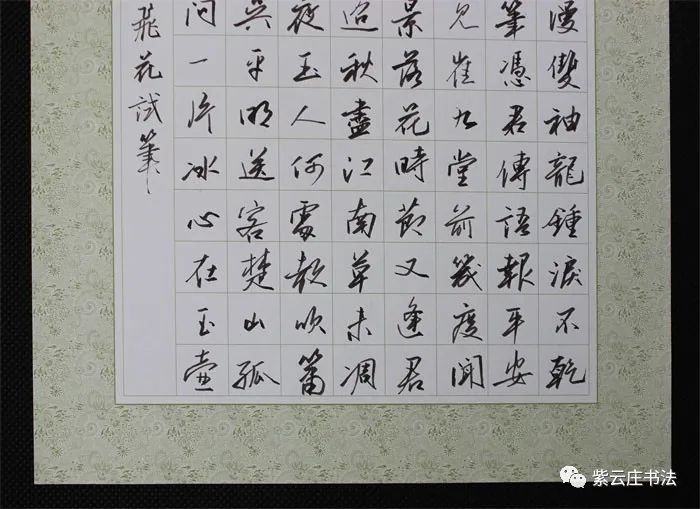 漫雙袖龍鍾淚不乾
筆憑君傳語報平安
見崔九堂前幾度聞
景落花時節又逢君
迢秋盡江南草未凋
夜玉人何處教吹簫
吳平明送客楚山孤
問一片冰心在玉壺
飛花試筆
紫云庄书法